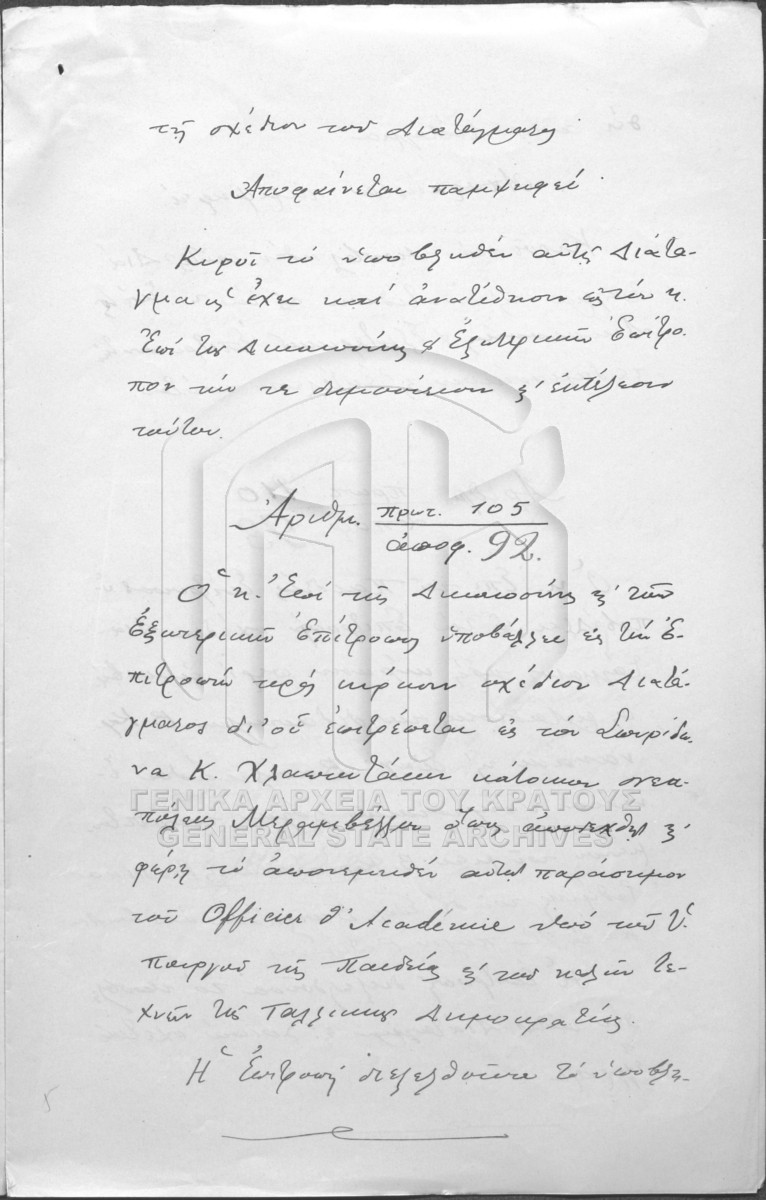 τῇ σχέδιον τοῦ Διατάγματος
Ἀποφαίνεται παμψηφεί
Κυροῖ τὸ ὑποβληθὲν αὐτῇ Διάτα-
γμα ὡς ἔχει καὶ ἀνατίθησιν εἰς τὸν κ.
Ἐπὶ τῆς Δικαιοσύνης & Ἐξωτερικῶν Ἐπίτρο-
πον τήν τε δημοσίευσιν & ἐκτέλεσιν
τούτου.
Ἀριθμ. πρωτ. 105
ἀποφ. 92.
Ὁ κ. Ἐπὶ τῆς Δικαιοσύνης & τῶν
Ἐξωτερικῶν Ἐπίτροπος ὑποβάλλει εἰς τὴν Ἐ-
πιτροπὴν πρὸς κύρωσιν σχέδιον Διατά-
γματος δι' οὗ ἐπιτρέπεται εἰς τὸν Σπυρίδω-
να Κ. Χλαπουτάκην κάτοικον Νεα-
πόλεως Μεραμβέλλου ὅπως ἀποδεχθῇ &
φέρῃ τὸ ἀπονεμηθὲν αὐτῷ παράσημον
τοῦ Officier d'Académie ὑπὸ τοῦ Ὑ-
πουργοῦ τῆς Παιδείας & τῶν καλῶν Τε-
χνῶν τῆς Γαλλικῆς Δημοκρατίας.
Ἡ Ἐπιτροπὴ διεξελθοῦσα τὸ ὑποβλη-
ΓΕΝΙΚΑ ΑΡΧΕΙΑ ΤΟΥ ΚΡΑΤΟΥΣ
GENERAL STATE ARCHIVES
5